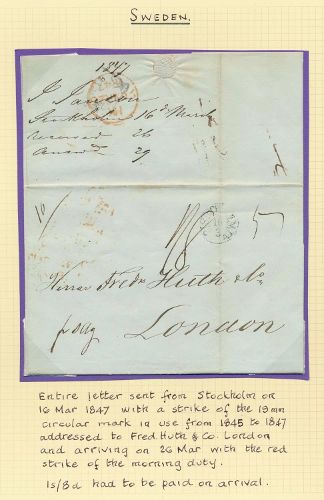 SWEDEN.
1847
Stockholm 16 March
received 26
answd 29
1/8
Herren Fredk Huth & Co.
London
Entire letter sent from Stockholm on
16 Mar 1847 with a strike of the 19mm
circular mark in use from 1845 to 1847
addressed to Fred. Huth & Co. London
and arriving on 26 Mar with the red
strike of the morning duty.
1s/8d had to be paid on arrival.